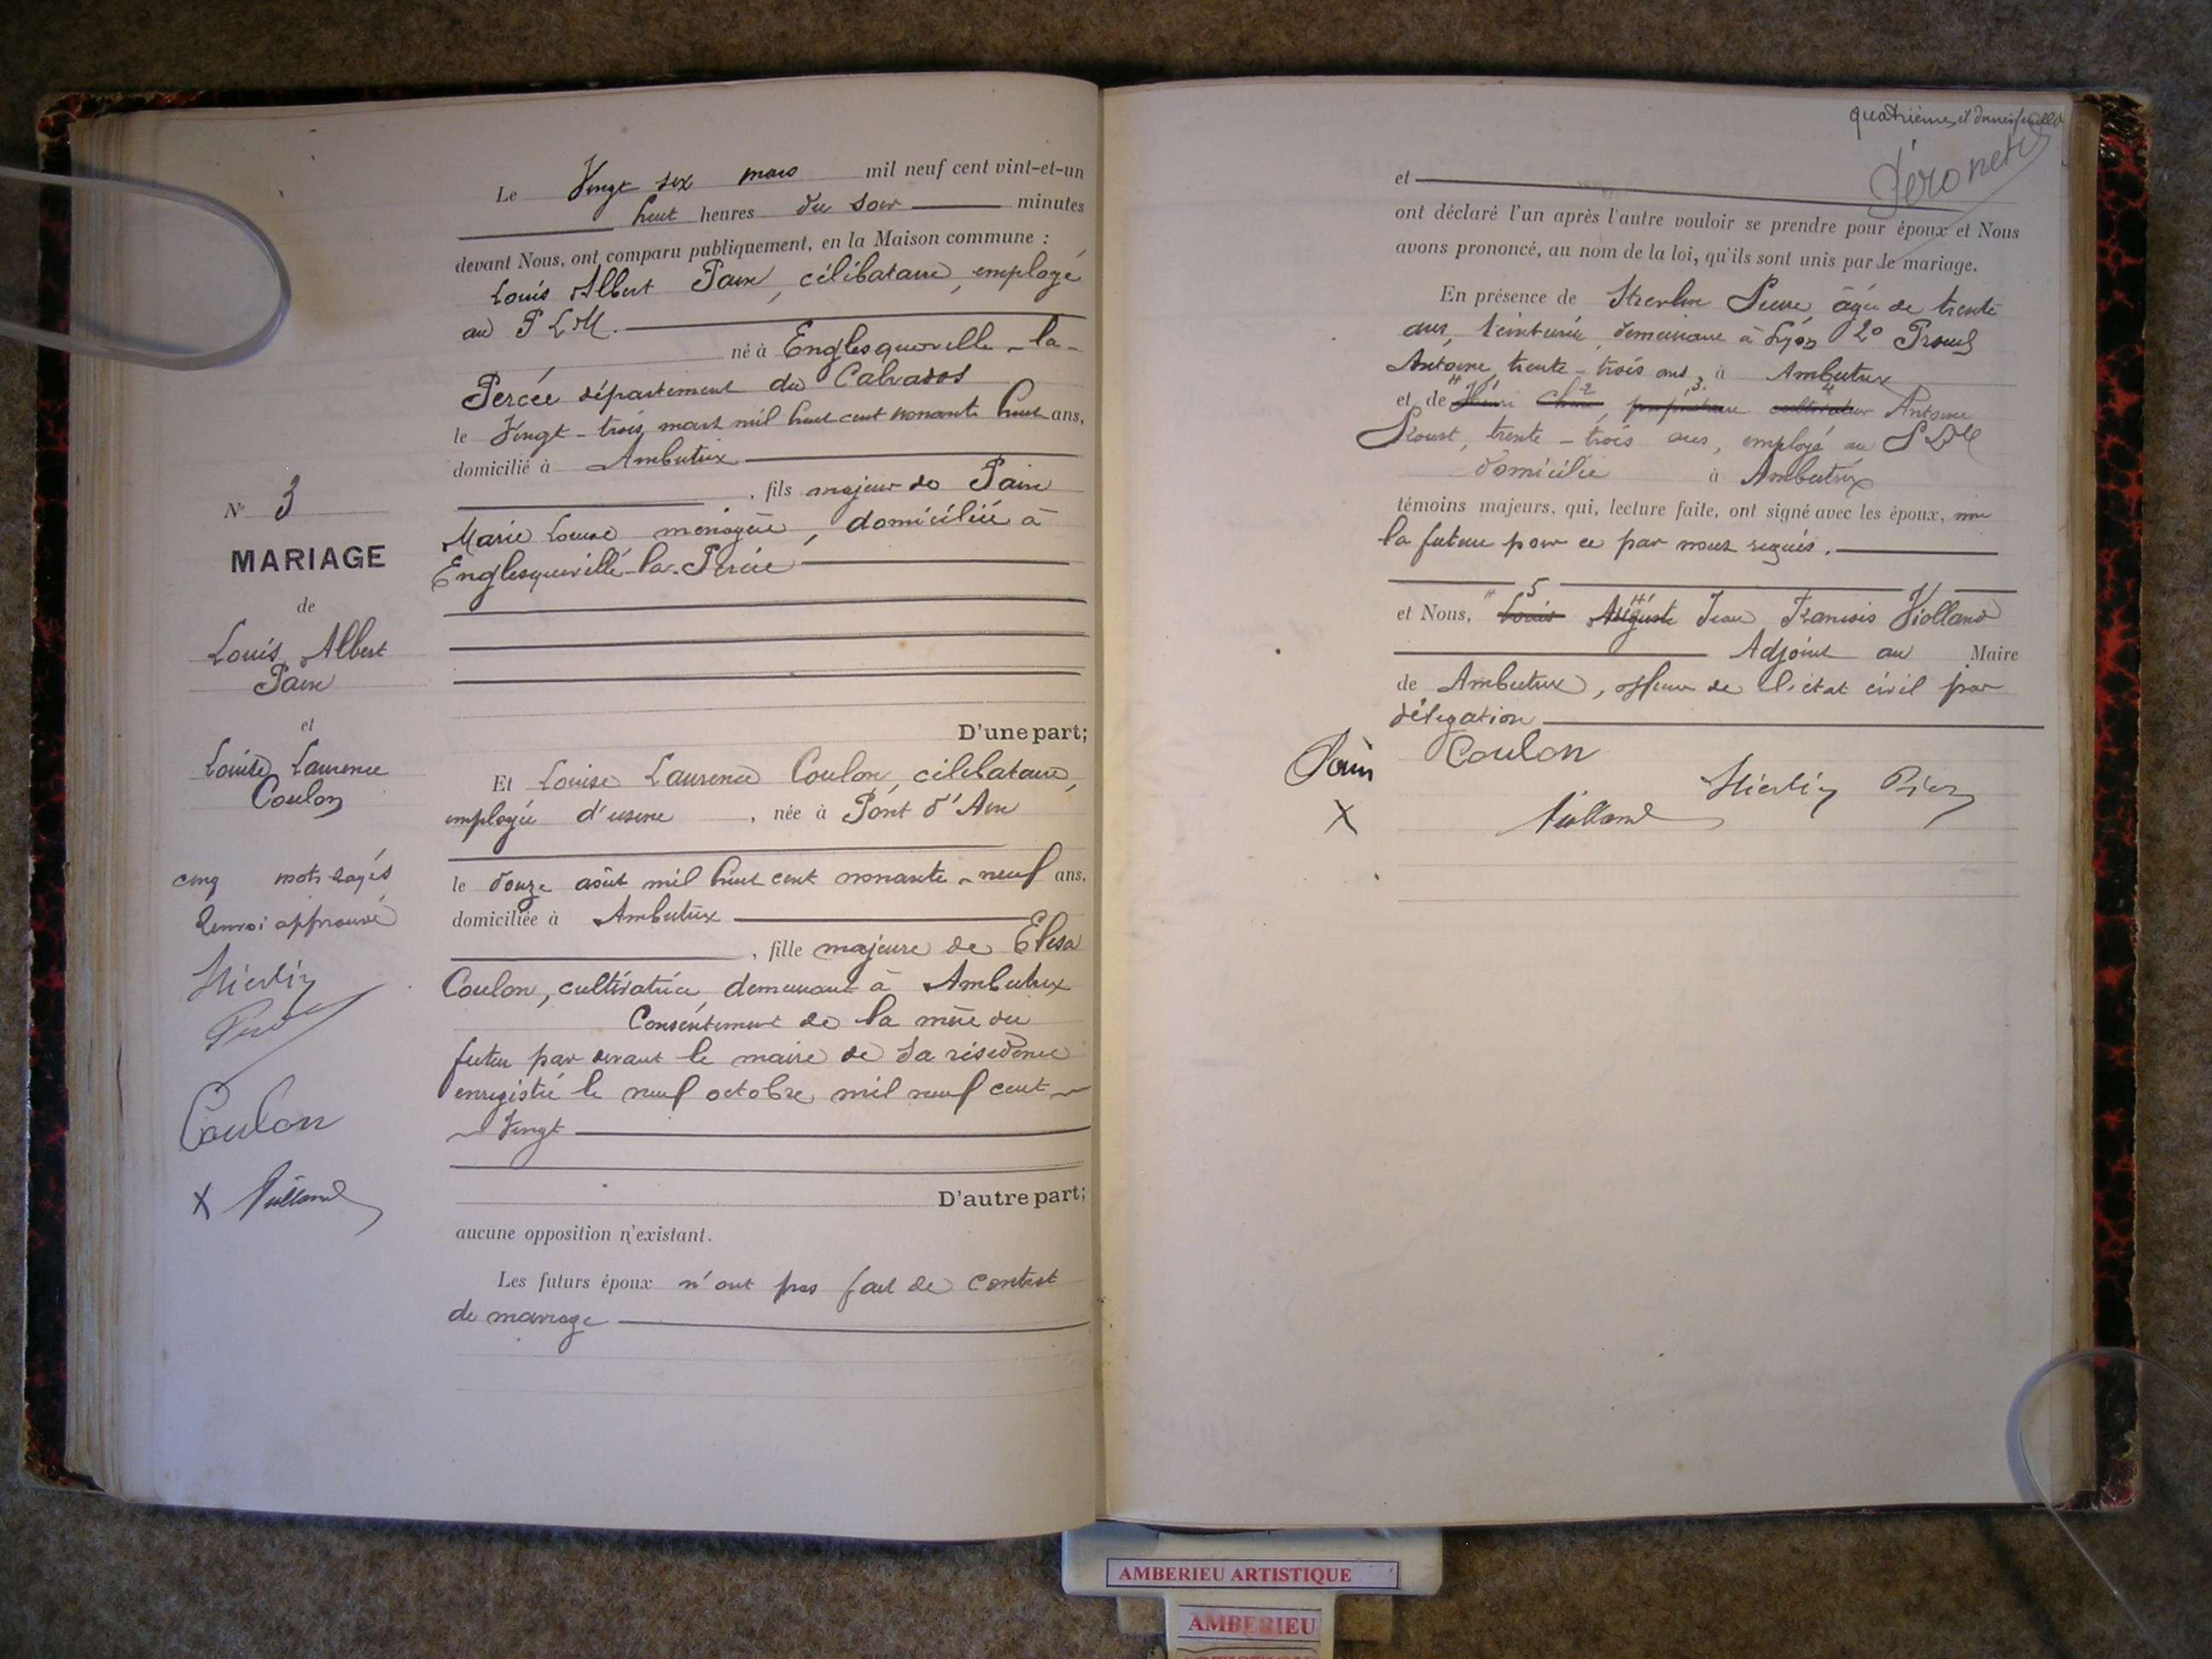 Le Vingt six mars mil neuf cent vint-et-un
huit heures du soir minutes
devant Nous, ont comparu publiquement, en la Maison commune :
Louis Albert Pain, célibataire, employé
au P L M.
né à Englesqueville-la-
Percée département du Calvados
le Vingt-trois mars mil huit cent nonante huit ans,
domicilié à Ambutrix
, fils majeur de Pain
Marie Louise ménagère, domiciliée à
Englesqueville-la-Percée
N° 3
MARIAGE
de
Louis Albert
Pain
et
Louise Laurence
Coulon
D'une part;
Et Louise Laurence Coulon, célibataire,
employée d'usine, née à Pont d'Ain
le douze août mil huit cent nonante-neuf ans,
domiciliée à Ambutrix
, fille majeure de Elisa
Coulon, cultivatrice, demeurant à Ambutrix
Consentement de la mère du
futur par devant le maire de sa résidence
enregistré le neuf octobre mil neuf cent
vingt
D'autre part;
aucune opposition n'existant.
Les futurs époux n'ont pas fait de contrat
de mariage
cinq mots rayés
Renvoi approuvé
Coulon
X Violland
quatrième et dernier feuillet
et
ont déclaré l'un après l'autre vouloir se prendre pour époux et Nous
avons prononcé, au nom de la loi, qu'ils sont unis par le mariage.
En présence de Pierre, âgé de trente
ans, teinturier, demeurant à Lyon 2°
Antoine, trente-trois ans, à Ambutrix
et de Henri propriétaire cultivateur Antoine
Proust, trente-trois ans, employé au P L M
domicilié à Ambutrix
témoins majeurs, qui, lecture faite, ont signé avec les époux,
la future pour ce par nous requis.
et Nous, Louis Auguste Jean François Violland
Adjoint au Maire
de Ambutrix, officier de l'état civil par
délégation
Pain Coulon
X Violland
AMBERIEU ARTISTIQUE
AMBERIEU